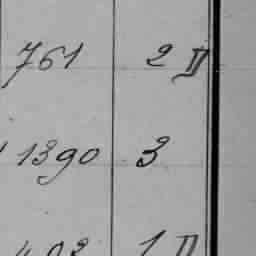 761 2 II
1390 3
493 1 II